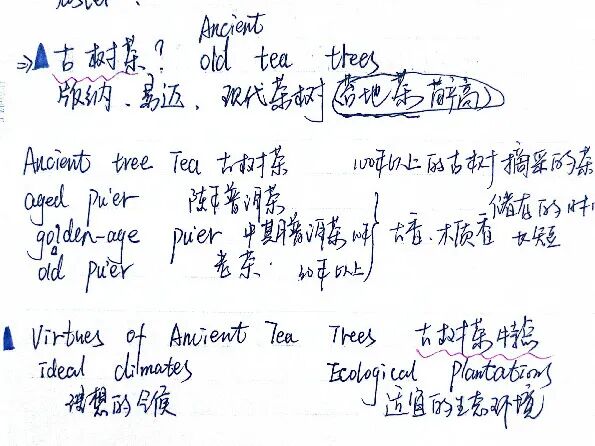 Ancient
⇒▲古树茶? old tea trees
版纳、易迈、现代茶树(台地茶 醇高)
Ancient tree Tea 古树茶 100年以上的古树摘采的茶
aged puer 陈年普洱茶
golden-age puer 中期普洱茶 古香、木质香 储存的时 长短
old puer 老茶 30年以上
▲ Virtues of Ancient Tea Trees 古树茶特点
ideal climates Ecological plantations
理想的气候 适宜的生态环境